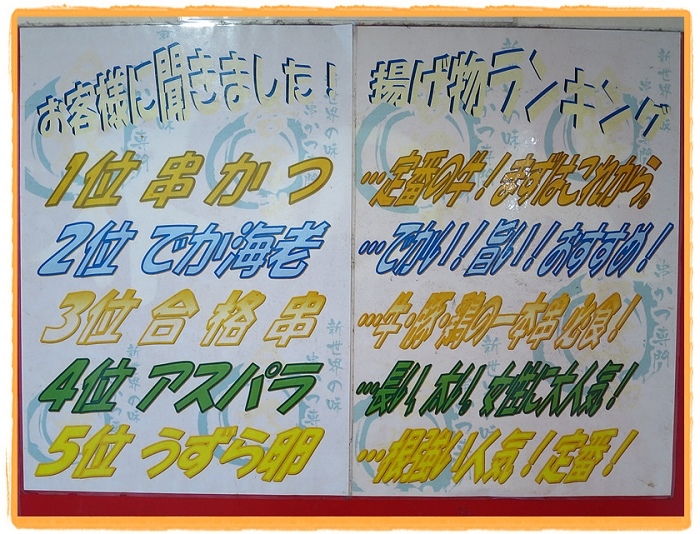 お客様に聞きました！ 揚げ物ランキング
1位 串かつ …定番の牛！まずはこれから。
2位 でか海老 …でかい！旨い！おすすめ！
3位 合格串 …牛・豚・鶏の一本串 必食！
4位 アスパラ …長い、太い。女性に大人気！
5位 うずら卵 …根強い人気！定番！
新世界の味
串かつ専門